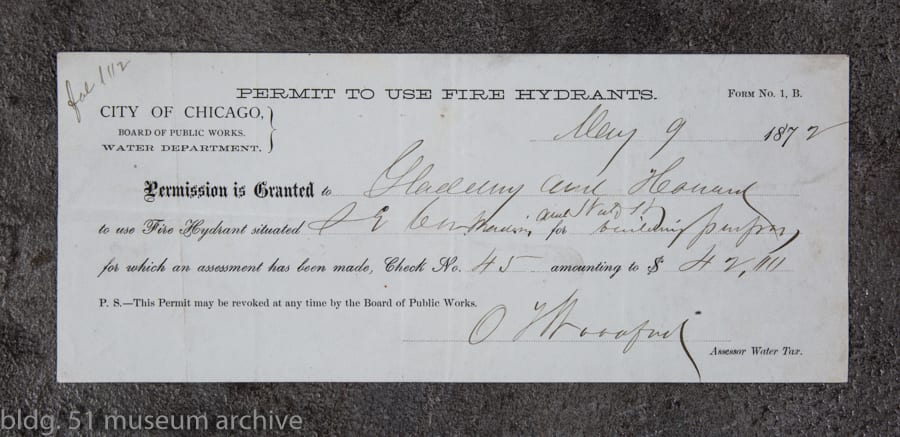 PERMIT TO USE FIRE HYDRANTS.
FORM NO. 1, B.
CITY OF CHICAGO,
BOARD OF PUBLIC WORKS.
WATER DEPARTMENT.
May 9 1872
Permission is Granted to and Howard
to use Fire Hydrant situated S E Cor Madison and for building purposes
for which an assessment has been made, Check No. 45 amounting to $ 42,
P. S.—This Permit may be revoked at any time by the Board of Public Works.
Assessor Water Tax.
bldg. 51 museum archive